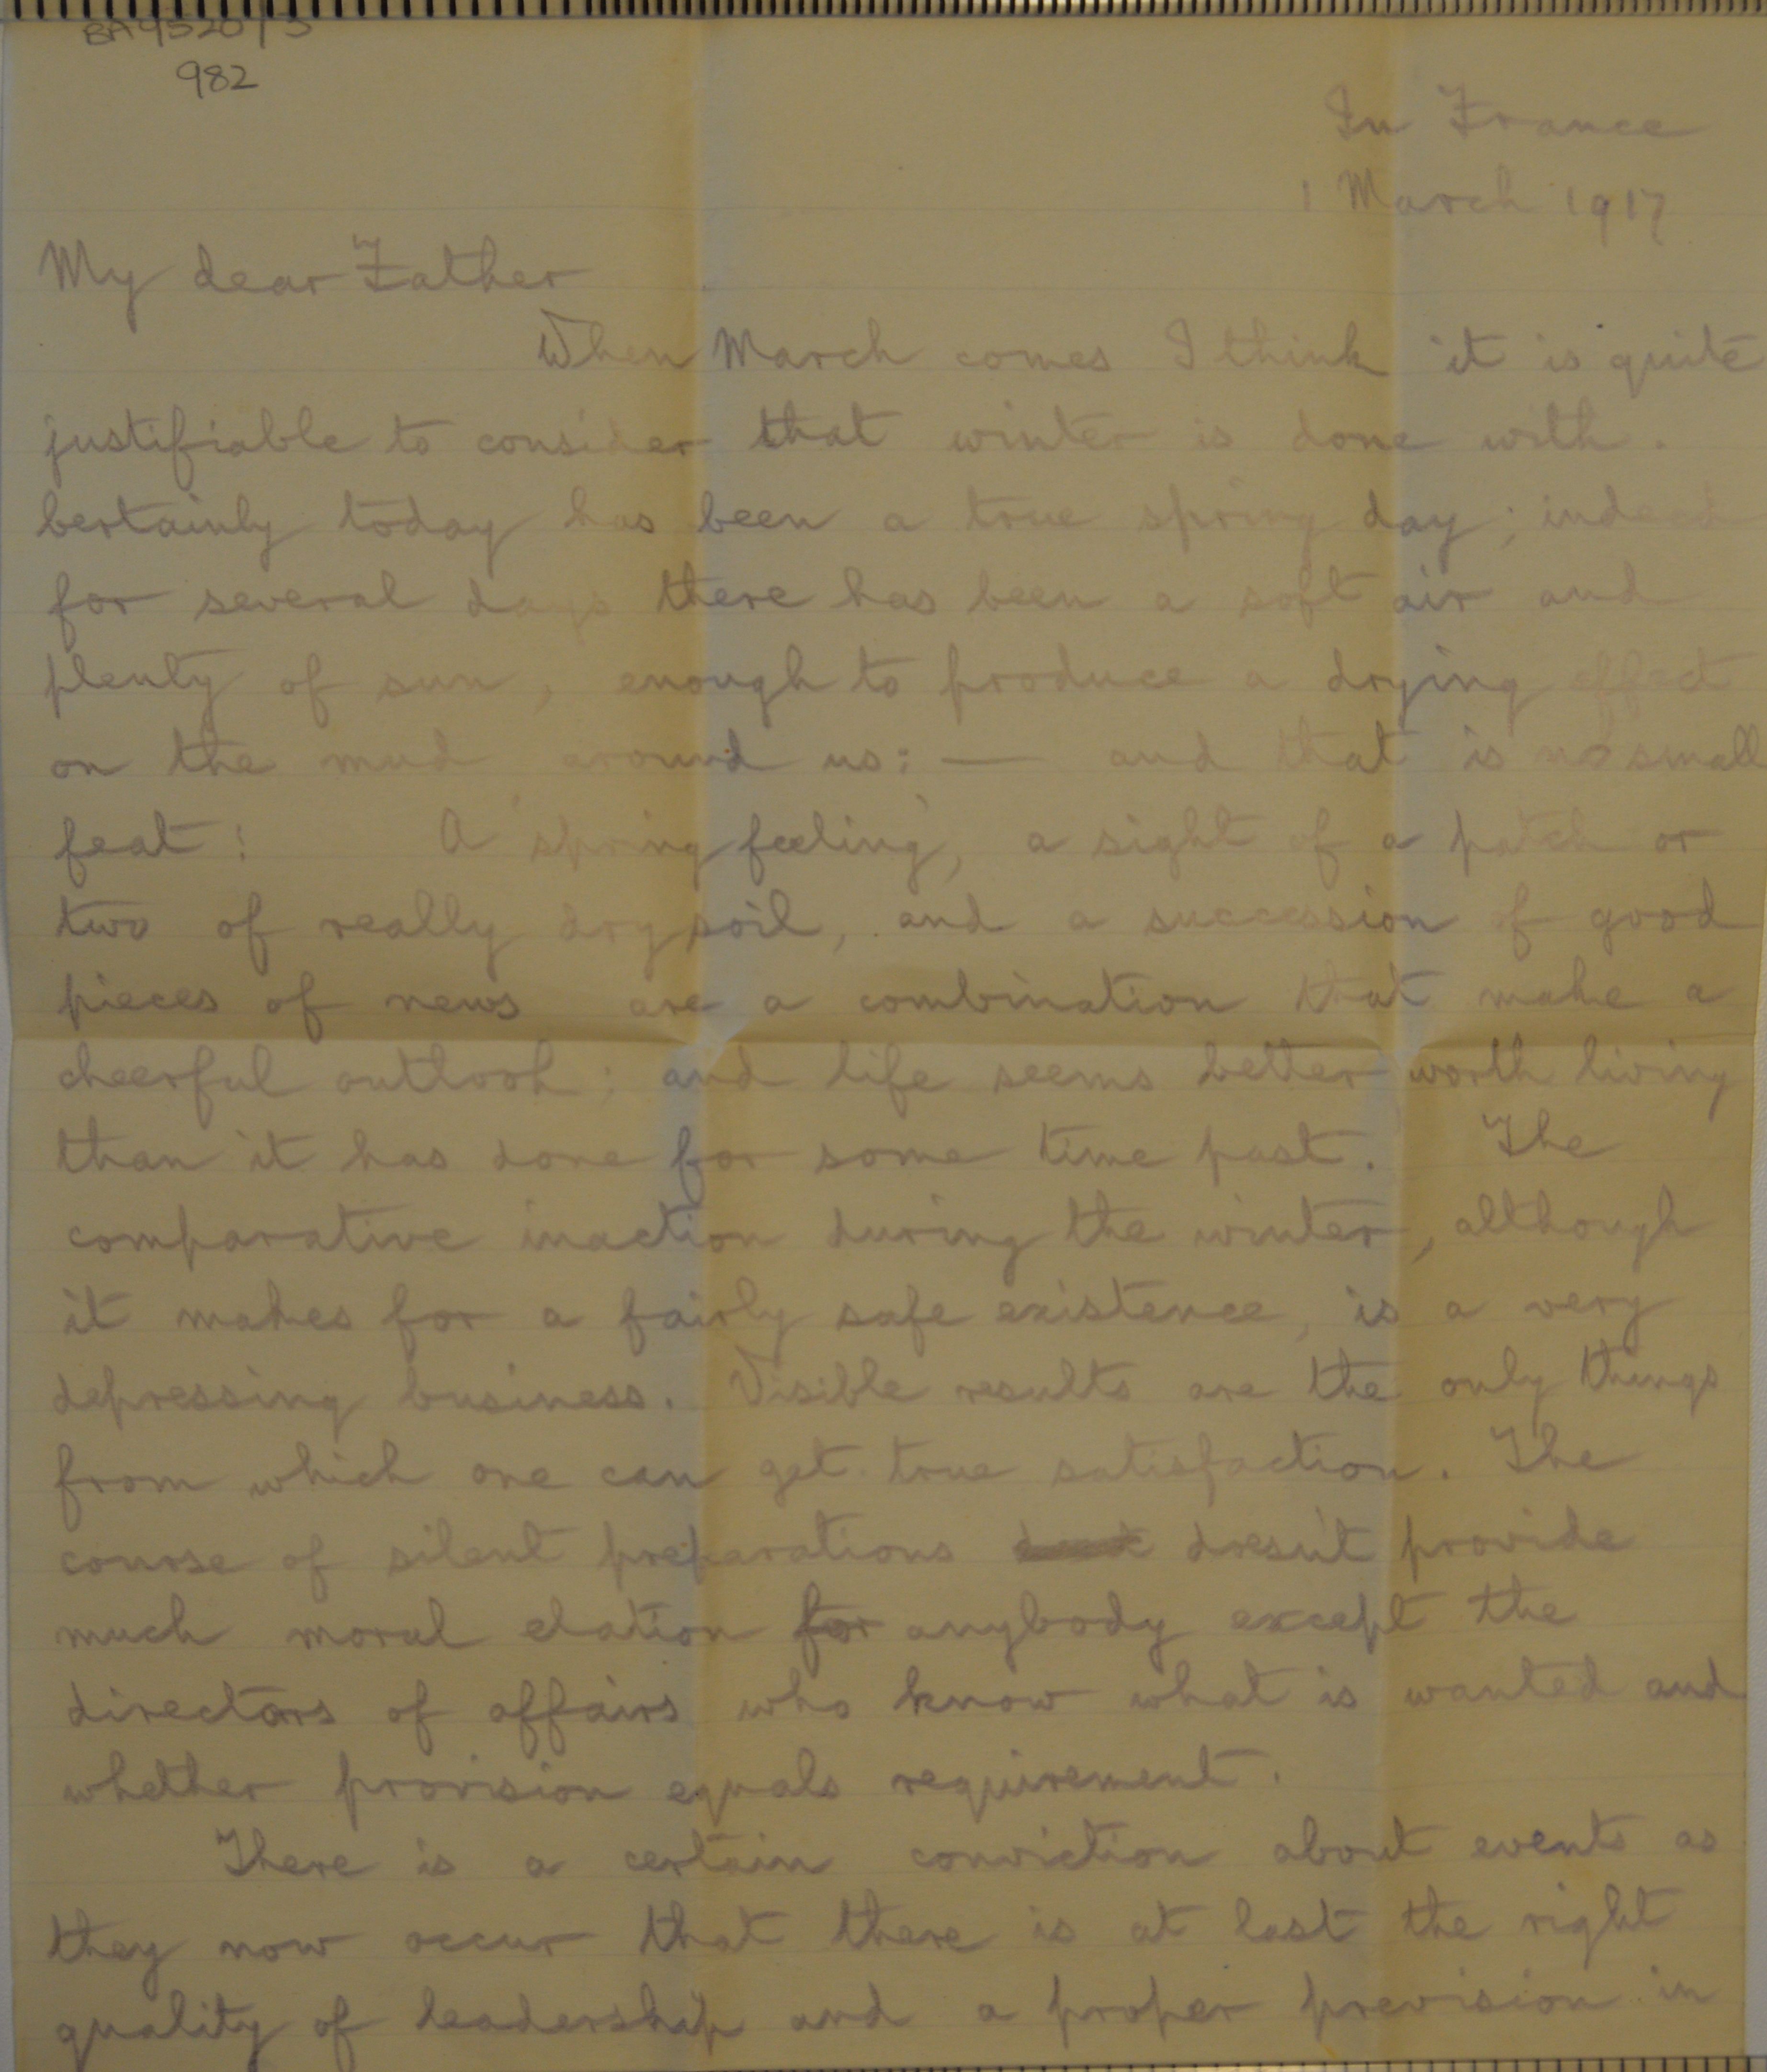 BA4520/5
982
In France
1 March 1917
My dear Father
When March comes I think it is quite
justifiable to consider that winter is done with.
Certainly today has been a true spring day; indeed
for several days there has been a soft air and
plenty of sun, enough to produce a drying effect
on the mud around us: — and that is no small
feat! A 'spring feeling', a sight of a patch or
two of really dry soil, and a succession of good
pieces of news are a combination that make a
cheerful outlook; and life seems better worth living
than it has done for some time past. The
comparative inaction during the winter, although
it makes for a fairly safe existence, is a very
depressing business. Visible results are the only things
from which one can get true satisfaction. The
course of silent preparations doesn't provide
much moral elation for anybody except the
directors of affairs who know what is wanted and
whether provision equals requirement.
There is a certain conviction about events as
they now occur that there is at last the right
quality of leadership and a proper prevision in